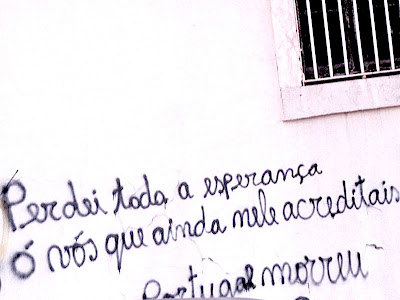 Perdei toda a esperança
Ó vós que ainda nele acreditais
Portugal morreu